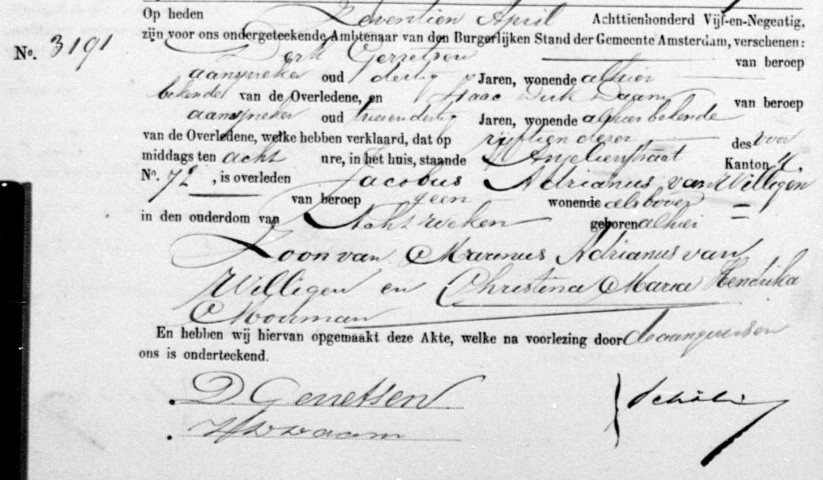 Op heden Zeventien April Achttienhonderd Vijf-en-Negentig,
zijn voor ons ondergeteekende Ambtenaar van den Burgerlijken Stand der Gemeente Amsterdam, verschenen:
No. 3191
Derk Gerretsen van beroep
aanspreker oud dertig Jaren, wonende alhier
bekende van de Overledene, en Isaac Dirk Daam van beroep
aanspreker oud tweeendertig Jaren, wonende alhier bekende
van de Overledene, welke hebben verklaard, dat op vijftien dezer des voor
middags ten acht ure, in het huis, staande Anjelierstraat Kanton
No. 72, is overleden Jacobus Adrianus van Willigen
van beroep geen wonende als boven
in den ouderdom van Acht weken geboren alhier
Zoon van Marinus Adrianus van
Willigen en Christina Maria Hendrika
Moorman
En hebben wij hiervan opgemaakt deze Akte, welke na voorlezing door de aangevers en
ons is onderteekend.
D Gerretsen
Daam